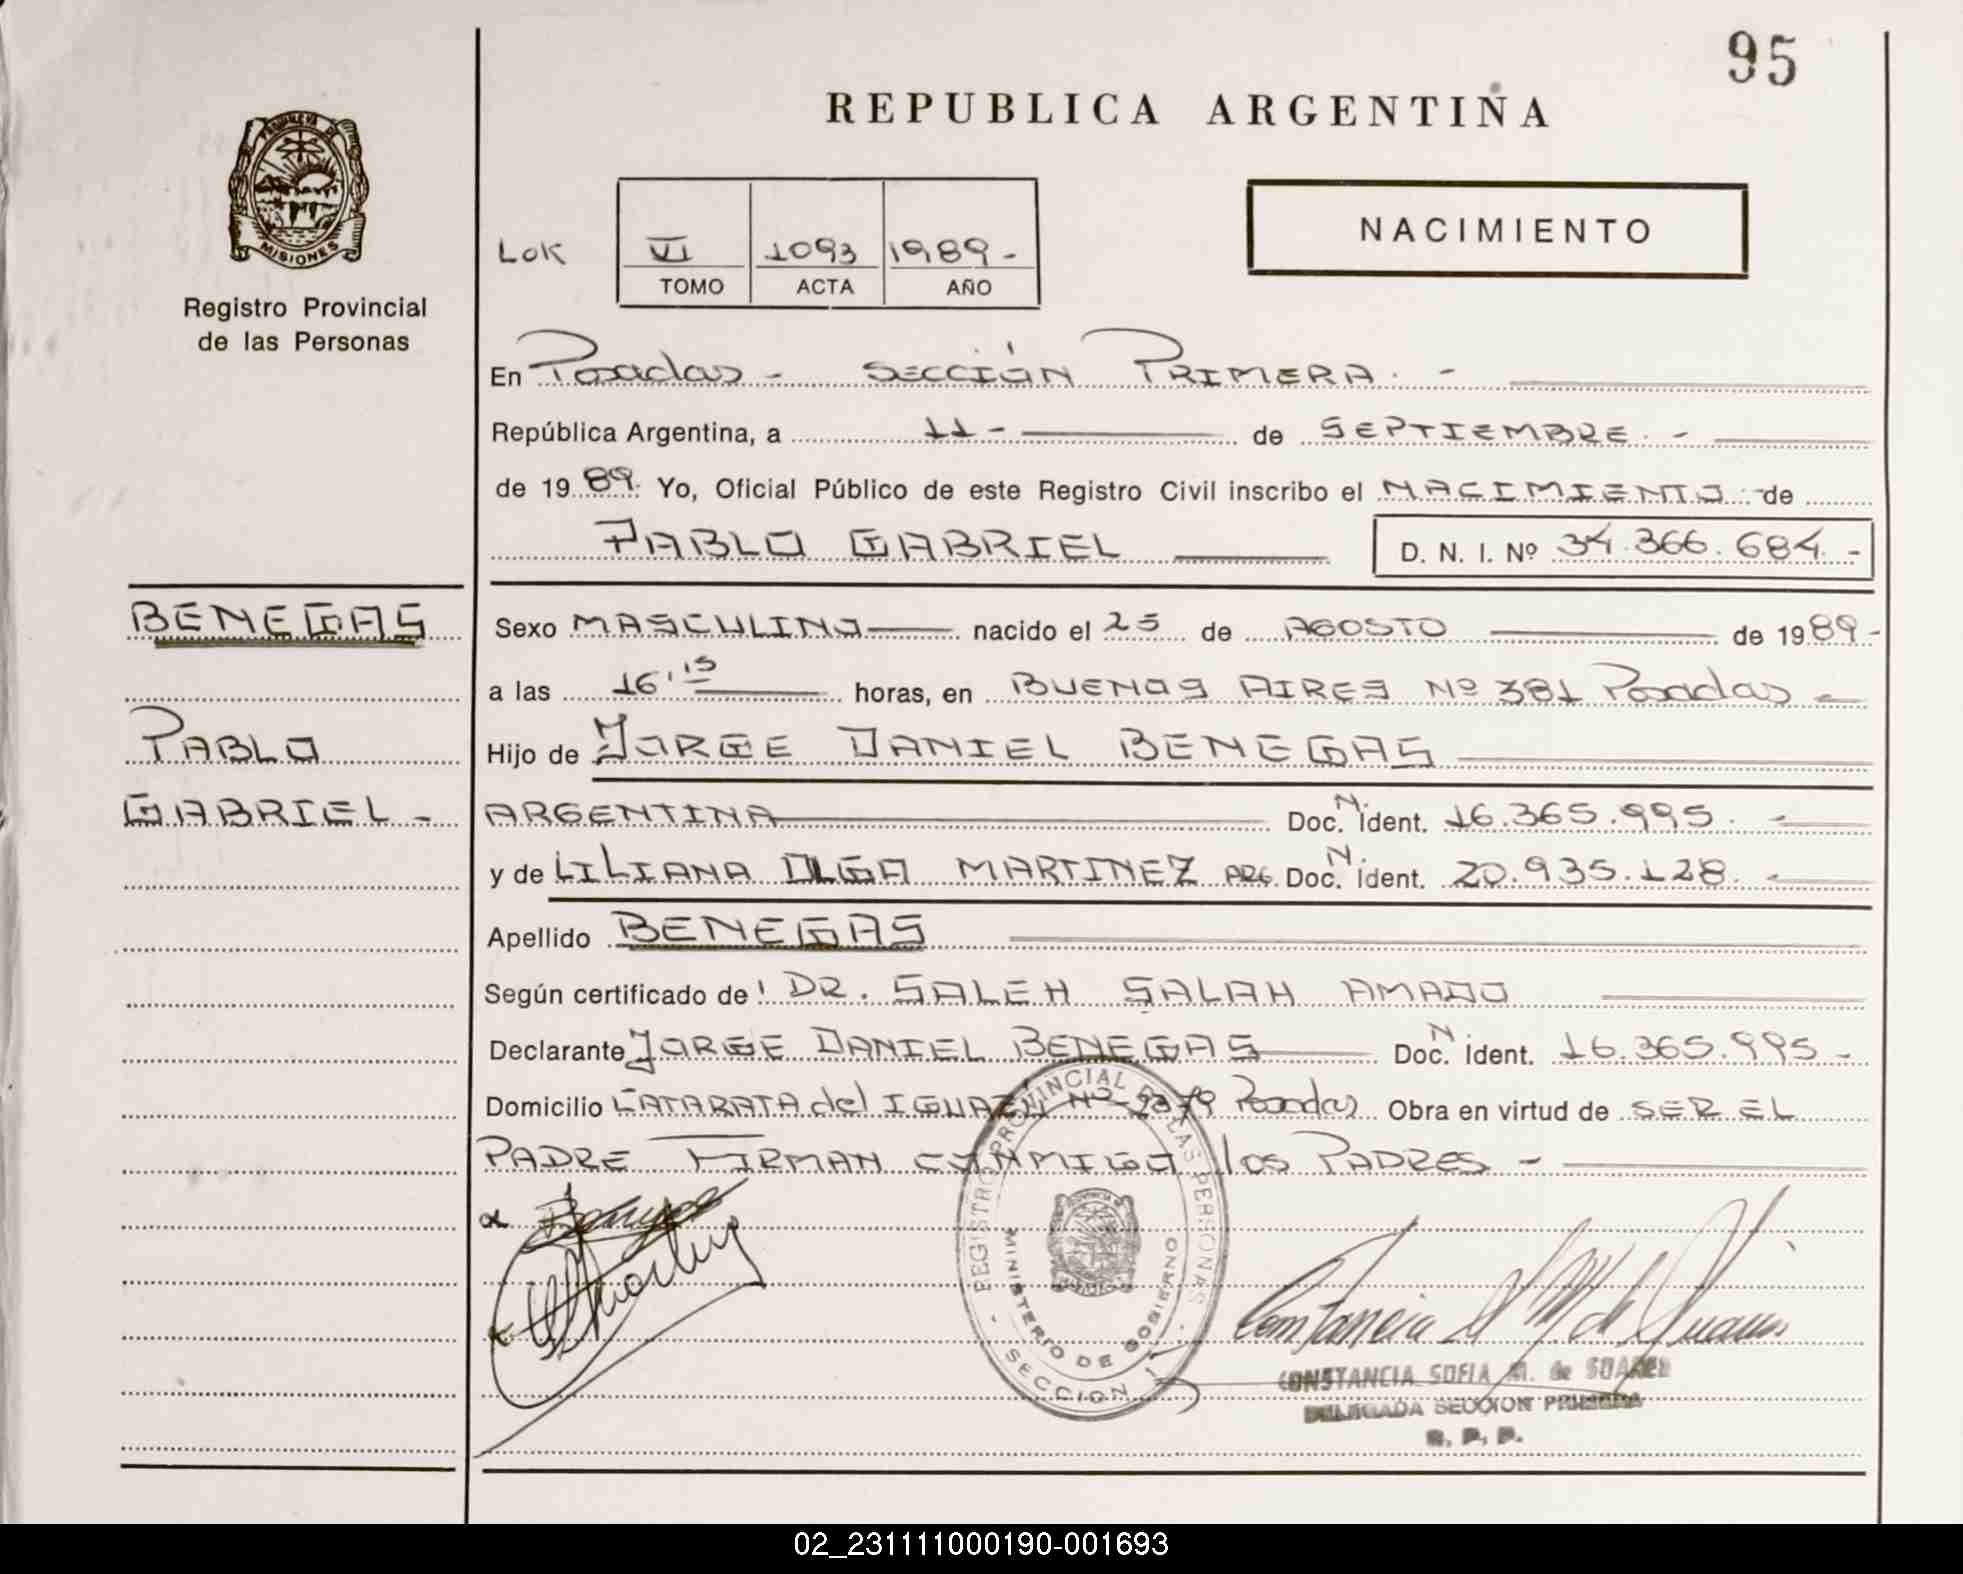 95
REPUBLICA ARGENTINA
PROVINCIA DE
MISIONES
Registro Provincial
de las Personas
NACIMIENTO
LOK VI 1093 1989-
TOMO ACTA AÑO
En Posadas - SECCIÓN PRIMERA. -
República Argentina, a 11- de SEPTIEMBRE. -
de 1989. Yo, Oficial Público de este Registro Civil inscribo el NACIMIENTO - de
PABLO GABRIEL D. N. I. Nº 34.366.684.-
BENEGAS
PABLO
GABRIEL -
Sexo MASCULINO nacido el 25 de AGOSTO de 1989-
a las 16'15 horas, en BUENOS AIRES Nº 381 Posadas -
Hijo de JORGE DANIEL BENEGAS
ARGENTINA Doc. N. Ident. 16.365.995. -
y de LILIANA OLGA MARTINEZ ARG. Doc. N. Ident. 20.935.128. -
Apellido BENEGAS
Según certificado de DR. SALEH SALAH AMADO
Declarante JORGE DANIEL BENEGAS Doc. N. Ident. 16.365.995 -
Domicilio CATARATA del IGUAZÚ Nº 2379 Posadas Obra en virtud de SER EL
PADRE FIRMAN CONMIGO los PADRES -
REGISTRO PROVINCIAL DE LAS PERSONAS
MINISTERIO DE GOBIERNO
- SECCION 1
CONSTANCIA SOFIA M. de SUAREZ
DELEGADA SECCION PRIMERA
R. P. P.
02_231111000190-001693